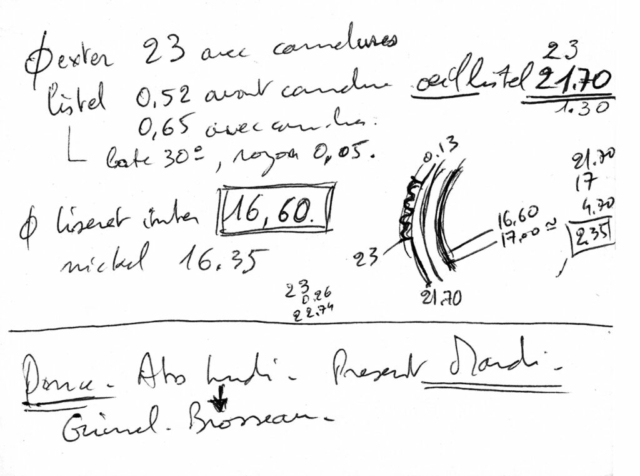 Φ exter 23 avec cannelures
listel 0.52 avant cannelure
0,65 avec cannelu.
bate 30°, rayon 0,05.
23
oeil listel 21.70
1.30
Φ liseret inter 16,60.
nickel 16.35
23
0.26
22.74
0.13
23
21.70
16.60
17.00 ≃
21.70
17
4.70
2.35
Abs lundi. Present Mardi.
Brosseau.